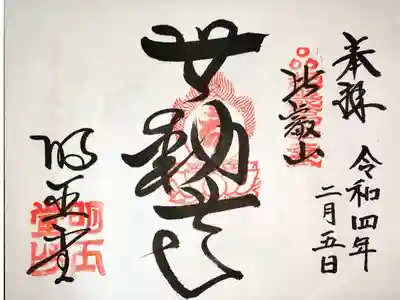 奉拝
令和四年
二月五日
比叡山
無動尊
明王堂